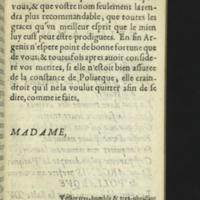 vous, & que vostre nom seulement la ren-
dra plus recommandable, que toutes les
graces qu'vn meilleur esprit que le mien
luy eust peut estre prodiguées. En fin Ar-
genis n'espere point de bonne fortune que
de vous, & toutesfois apres auoir conside-
ré vos merites, si elle n'estoit bien asseurée
de la constance de Poliarque, elle crain-
droit qu'il ne la voulut quitter afin de se
dire, comme ie faits,
MADAME,
Vostre tres-humble & tres-obeissant